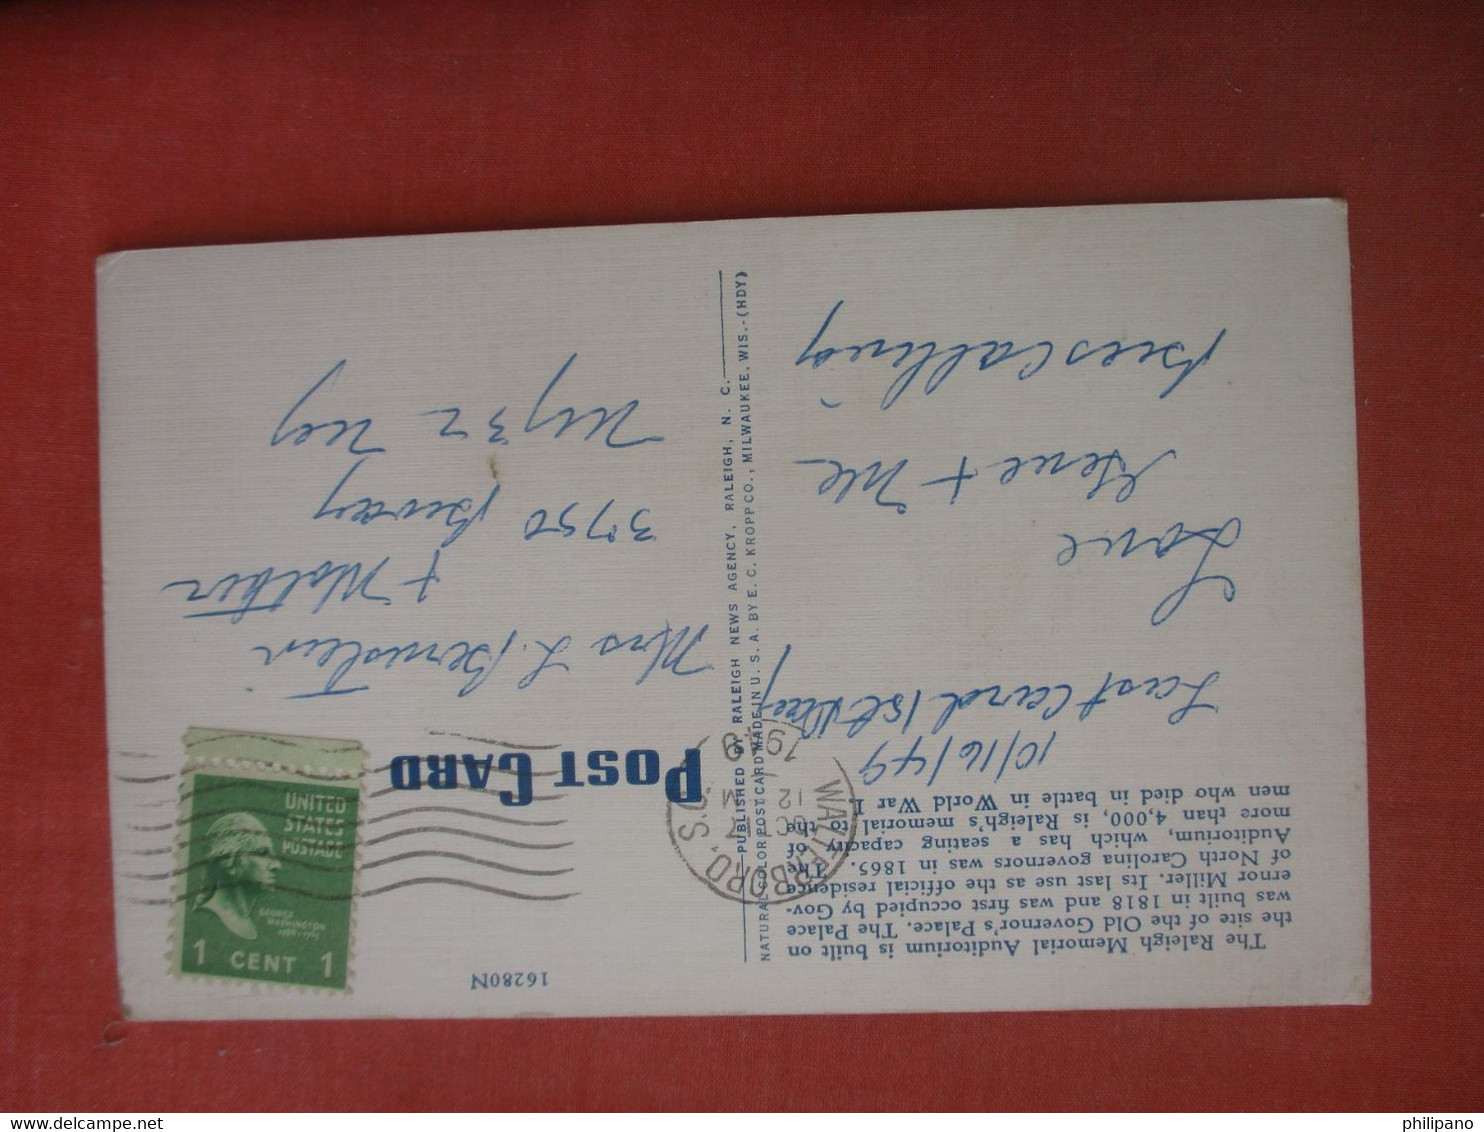 The Raleigh Memorial Auditorium is built on
the site of the Old Governor's Palace. The Palace
was built in 1818 and was first occupied by Gov-
ernor Miller. Its last use as the official residence
of North Carolina governors was in 1865. The
Auditorium, which has a seating capacity of
more than 4,000, is Raleigh's memorial to the
men who died in battle in World War I.
10/16/49
Last Card 1st
Love
Gene + Me
Bees Calling
NATURAL COLOR POST CARD MADE IN U. S. A. BY E. C. KROPP CO., MILWAUKEE, WIS.-(HDY)
PUBLISHED BY RALEIGH NEWS AGENCY, RALEIGH, N. C.
16280N
POST CARD
WALTERBORO, S.C.
OCT 17
12 M
1949
1 CENT 1
GEORGE
WASHINGTON
UNITED
STATES
POSTAGE
Mrs L. Bernstein
+ Walter
3750 Bway
NY 32 NY
philipano